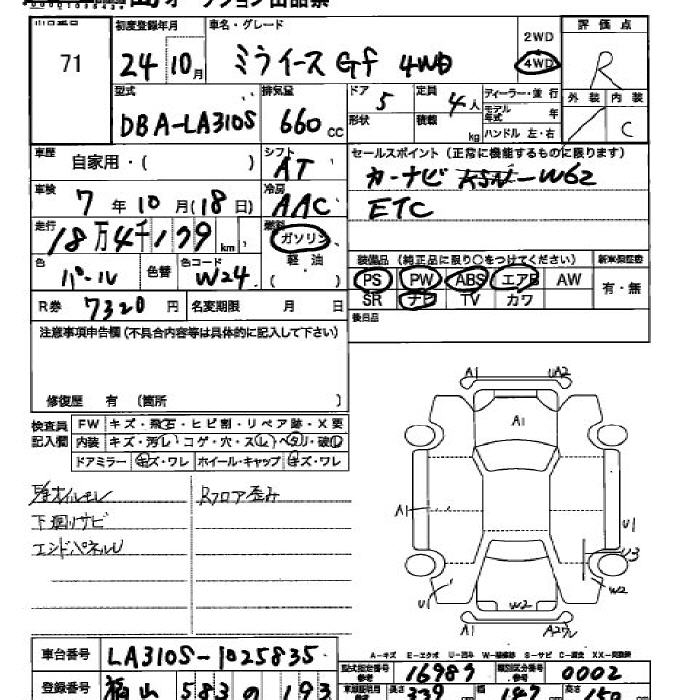 オークション出品票
71
初度登録年月
24年10月
車名・グレード
ミライース Gf 4WD
2WD
4WD
評価点
R
型式
DBA-LA310S
排気量
660 cc
ドア
5
形状
定員
4人
積載
kg
ディーラー・並行
モデル年式 年
ハンドル 左・右
外装 内装
C
車歴
自家用・( )
シフト
AT
セールスポイント(正常に機能するものに限ります)
カーナビ KSN-W62
ETC
車検
7年10月(18日)
冷房
AAC
走行
18万4千179km
燃料
ガソリン
軽油
( )
色
パール
色替
色コード
W24
装備品(純正品に限り○をつけてください)
PS PW ABS エアB AW
SR ナビ TV カワ
新車保証書
有・無
R券 7320円 名変期限 月 日
後日品
注意事項申告欄(不具合内容等は具体的に記入して下さい)
修復歴 有(箇所 )
検査員記入欄
FW キズ・飛石・ヒビ割・リペア跡・X要
内装 キズ・汚レ・コゲ・穴・スレ・ベタリ・破レ
ドアミラー キズ・ワレ ホイール・キャップ キズ・ワレ
オイルモレ
Rフロア歪み
下廻りサビ
エンドパネルU
A1
UA2
A1
A1
U1
U3
W2
U1
W2
A2ワレ
A-キズ E-エクボ U-凹み W-補修跡 S-サビ C-腐食 XX-交換済
車台番号
LA310S-1025835
型式指定番号 参考
16989
類別区分番号 参考
0002
登録番号
福山 583 の 193
長さ 339
幅 147